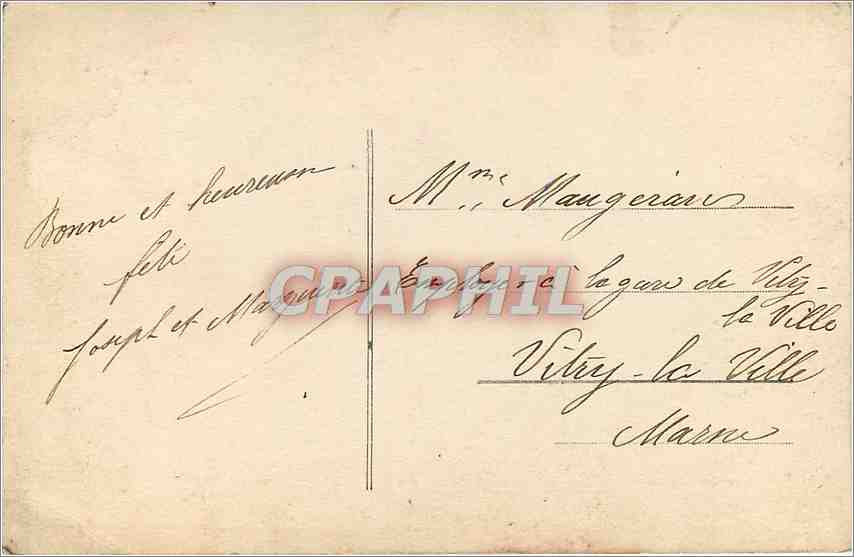 Bonne et heureuse
fête
Joseph et Marguerite
Mme Maugérard
Employée à la gare de Vitry-
la Ville
Vitry-la Ville
Marne
CPAPHIL